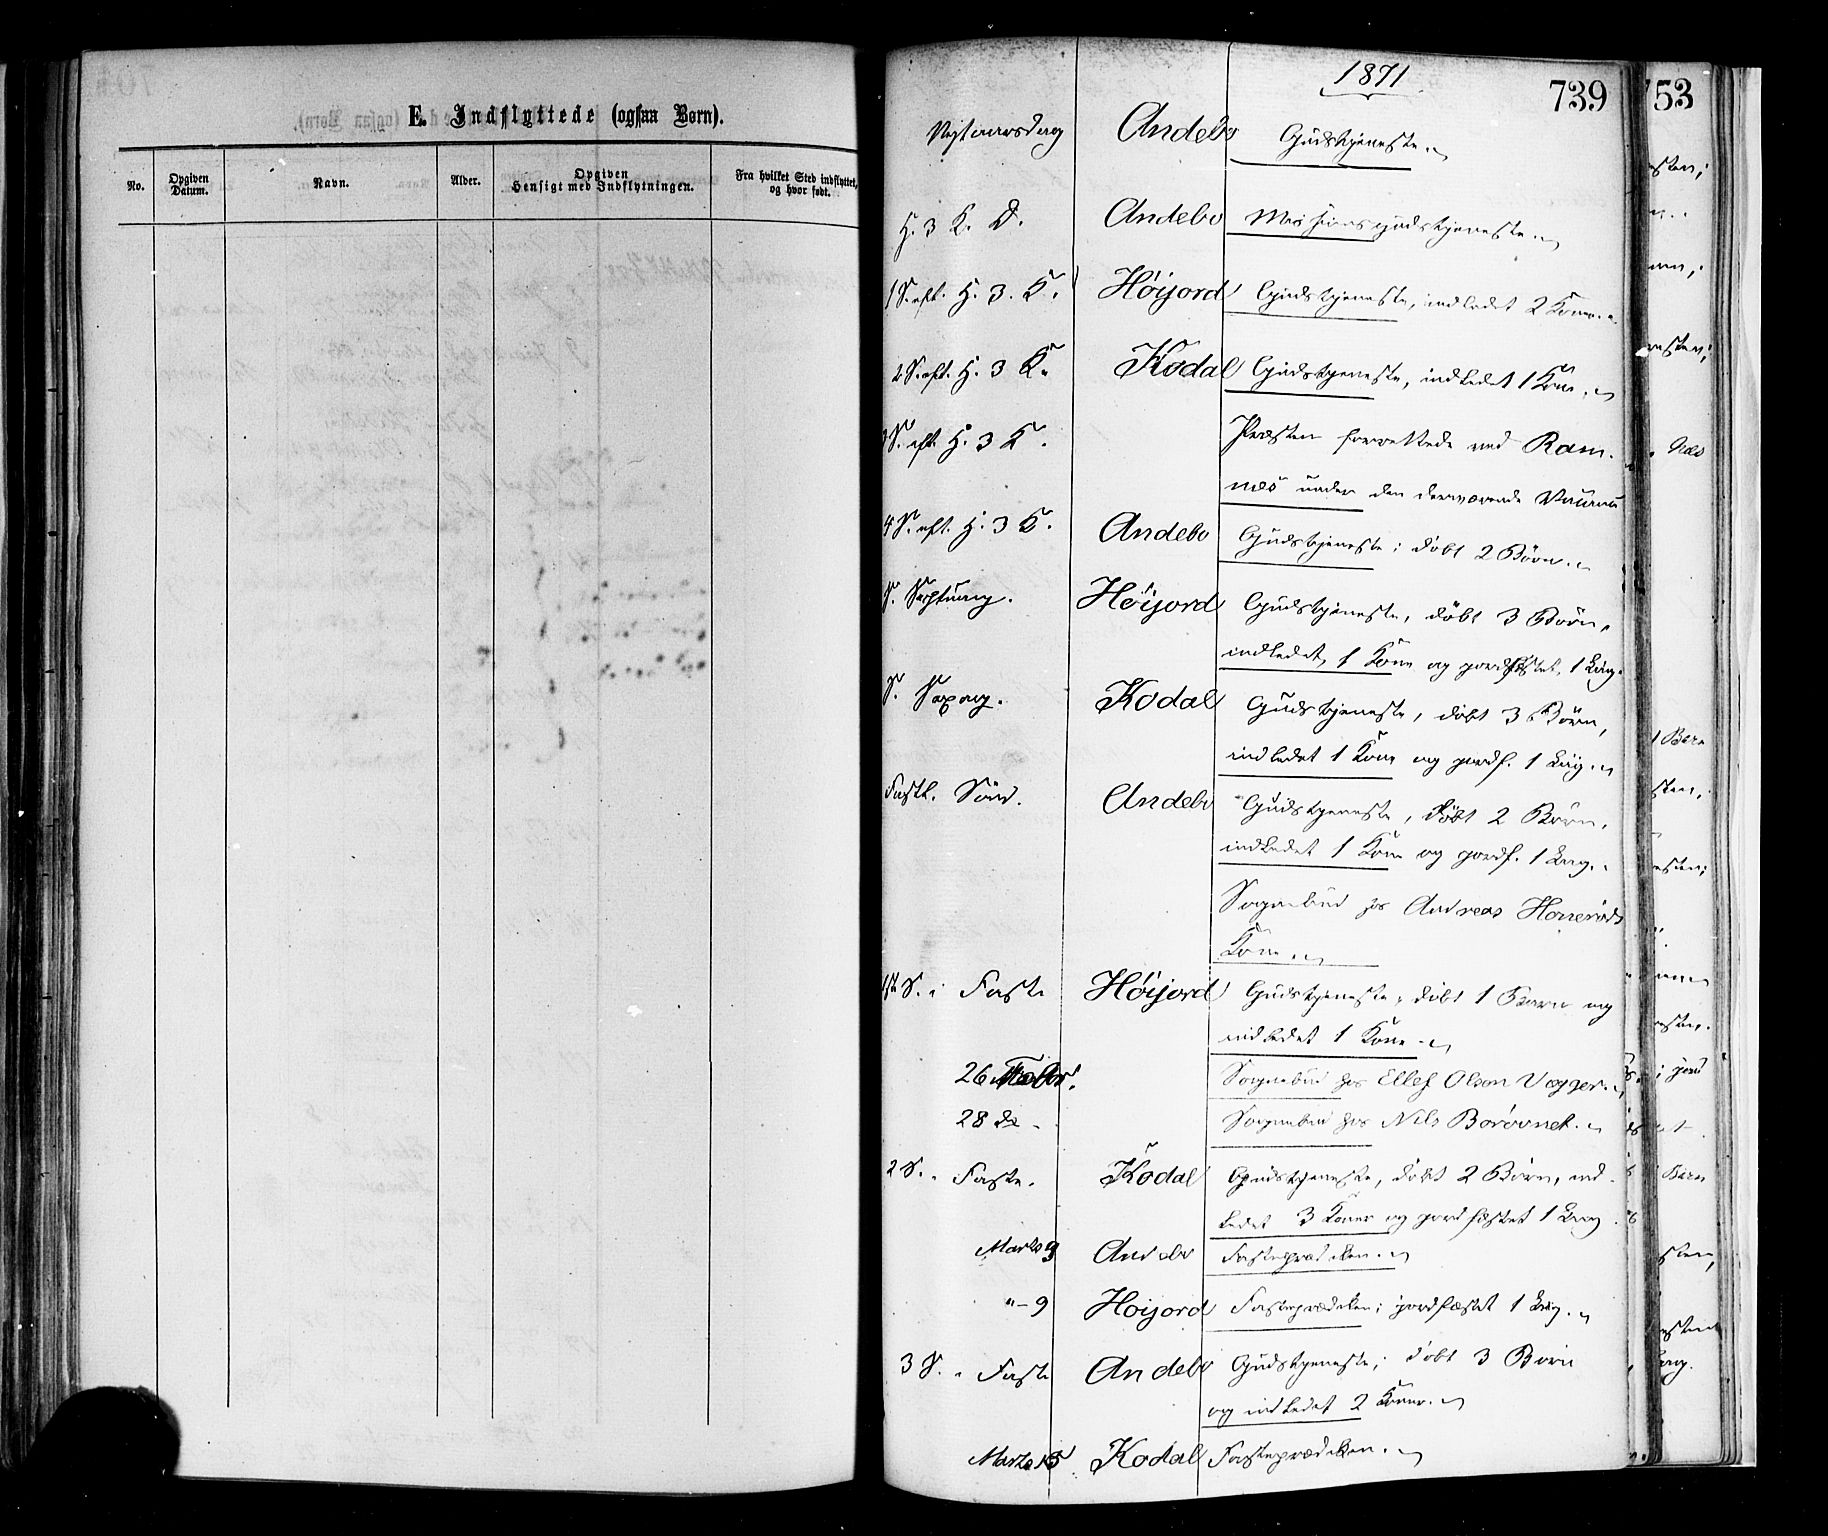 E. Indflyttede (ogsaa Børn).
No.
Opgiven Datum.
Navn.
Alder.
Opgiven Hensigt med Indflytningen.
Fra hvilket Sted indflyttet, og hvor født.
1871
739
753
Nytaarsdag Andebo Gudstjeneste.
H. 3 K. D. Andebo Missionsgudstjeneste.
1 S. eft. H. 3. K. Høijord Gudstjeneste, indledet 2 Koner.
2 S. eft. H. 3 K. Kodal Gudstjeneste, indledet 1 Kone.
3 S. eft. H. 3 K. Præsten forrettede ved Ram-
næs under den derværende
4 S. eft. H. 3 K. Andebo Gudstjeneste; døbt 2 Børn.
S. Septuag. Høijord Gudstjeneste, døbt 3 Børn,
indledet 1 Kone og jordfæstet 1 Liig.
S. Sexag. Kodal Gudstjeneste, døbt 3 Børn,
indledet 1 Kone og jordf. 1 Liig.
Fastl. Sønd. Andebo Gudstjeneste, døbt 2 Børn,
indledet 1 Kone og jordf. 1 Liig.
Sognebud hos Andreas
Kone.
1ste S. i Faste Høijord Gudstjeneste, døbt 1 Barn og
indledet 1 Kone.
26 Febr. Sognebud hos Ellef Olsen
28 de Sognebud hos Nils
2 S. i Faste. Kodal Gudstjeneste, døbt 2 Børn, ind-
ledet 3 Koner og jordfæstet 1 Liig
Marts Andebo Fasteprædiken.
" - 9 Høijord Fasteprædiken; jordfæstet 1 Liig.
3 S. i Faste Andebo Gudstjeneste; døbt 3 Børn
og indledet 2 Koner.
Marts 15 Kodal Fasteprædiken.